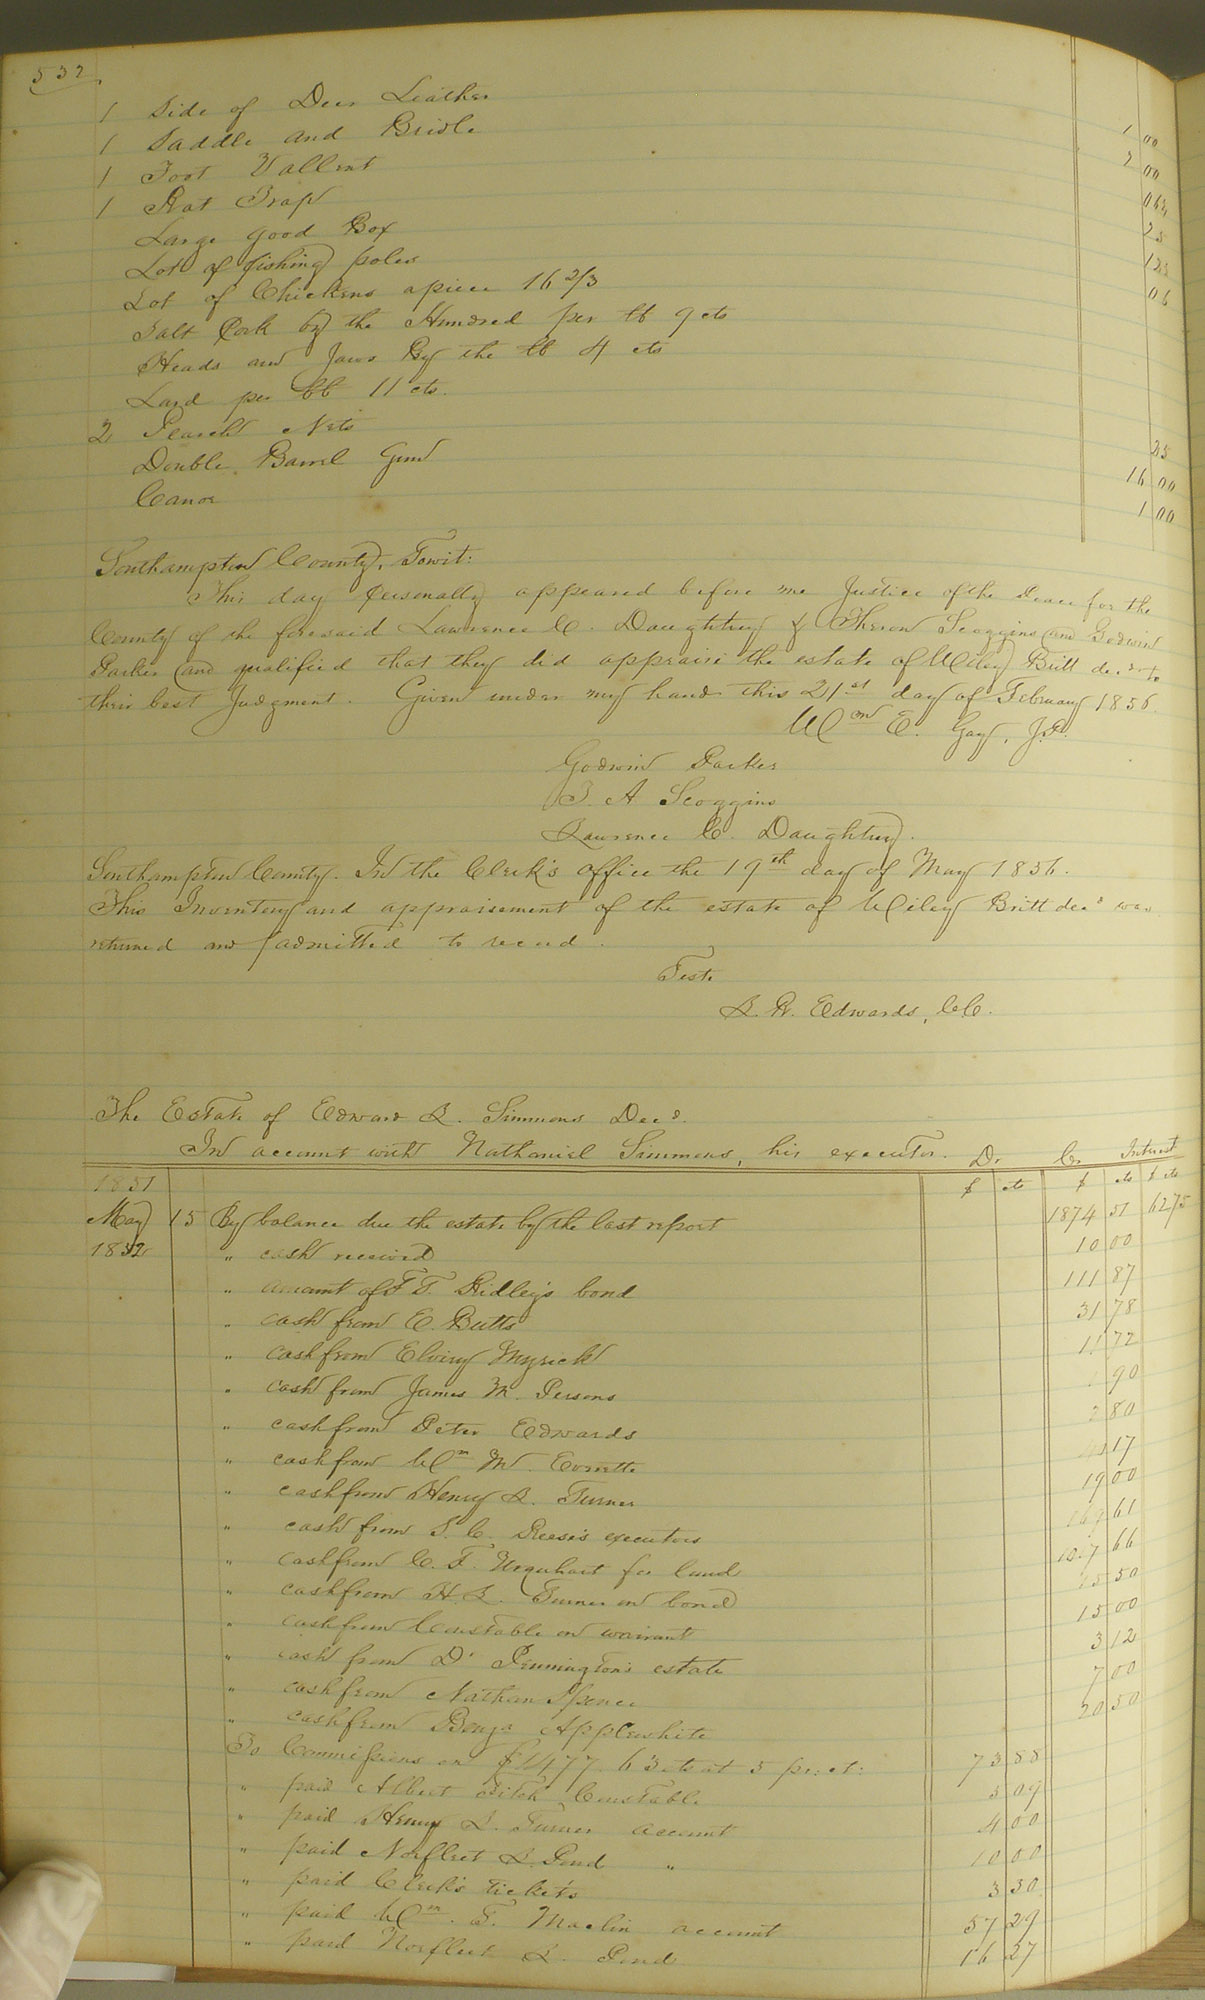 532
1 Side of Deer Leather 1 00
1 Saddle and Bridle 2 00
1 Foot Vallent 06¼
1 Rat Trap 25
Large good Box 12½
Lot of fishing poles 06
Lot of Chickens apiece 16 2/3
Salt Pork by the Hundred per lb 9 cts
Heads and Jaws By the lb 4 cts
Lard per lb 11 cts.
2 Pearch Nets 25
Double Barrel Gun 16 00
Canoe 1 00
Southampton County, Towit:
This day personally appeared before me Justice of the Peace for the
County of the foresaid Lawrence C. Daughtrey & Theron Scoggins and Godwin
Parker and qualified that they did appraise the estate of Wiley Britt decd to
their best Judgment. Given under my hand this 21st day of February 1856.
Wm E. Gay, J.P.
Godwin Parker
T. A Scoggins
Lawrence C. Daughtrey.
Southampton County. In the Clerk's office the 19th day of May 1856.
This Inventory and appraisement of the estate of Wiley Britt decd was
returned and admitted to record.
Teste
L. R. Edwards, C.C.
The Estate of Edward L. Simmons Decd.
In account with Nathaniel Simmons, his executor. Dr Cr Interest
1851 $ cts $ cts $ cts
May 15 By balance due the estate by the last report 1874 51 62 75
1852 " cash received 10 00
" amount of F T. Ridley's bond 111 87
" cash from E. Butts 31 78
" cash from Elviry Myrick 11 72
" cash from James M. Persons 90
" cash from Peter Edwards 2 80
" cash from Wm M. Everette 17
" cash from Henry L. Turner 19 00
" cash from S. C. Reese's executors 61
" cash from C. F. Urquhart for land 66
" cash from H. L. Turner on bond 50
" cash from Constable on warrant 15 00
" cash from Dr Pennington's estate 3 12
" cash from Nathan Spence 7 00
" cash from Benja Applewhite 20 50
To Commissions on $1477.63 cts at 5 per ct: 73 88
" paid Albert Fitch Constable 3 09
" paid Henry L. Turner account 4 00
" paid Norfleet L. Pond " 10 00
" paid Clerk's tickets 3 30
" paid Wm. F. Maclin account 57 29
" paid Norfleet L. Pond 16 27